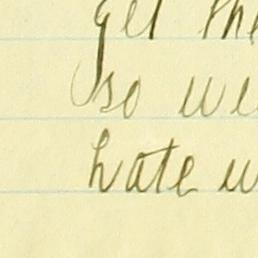 get the
so we
hate w